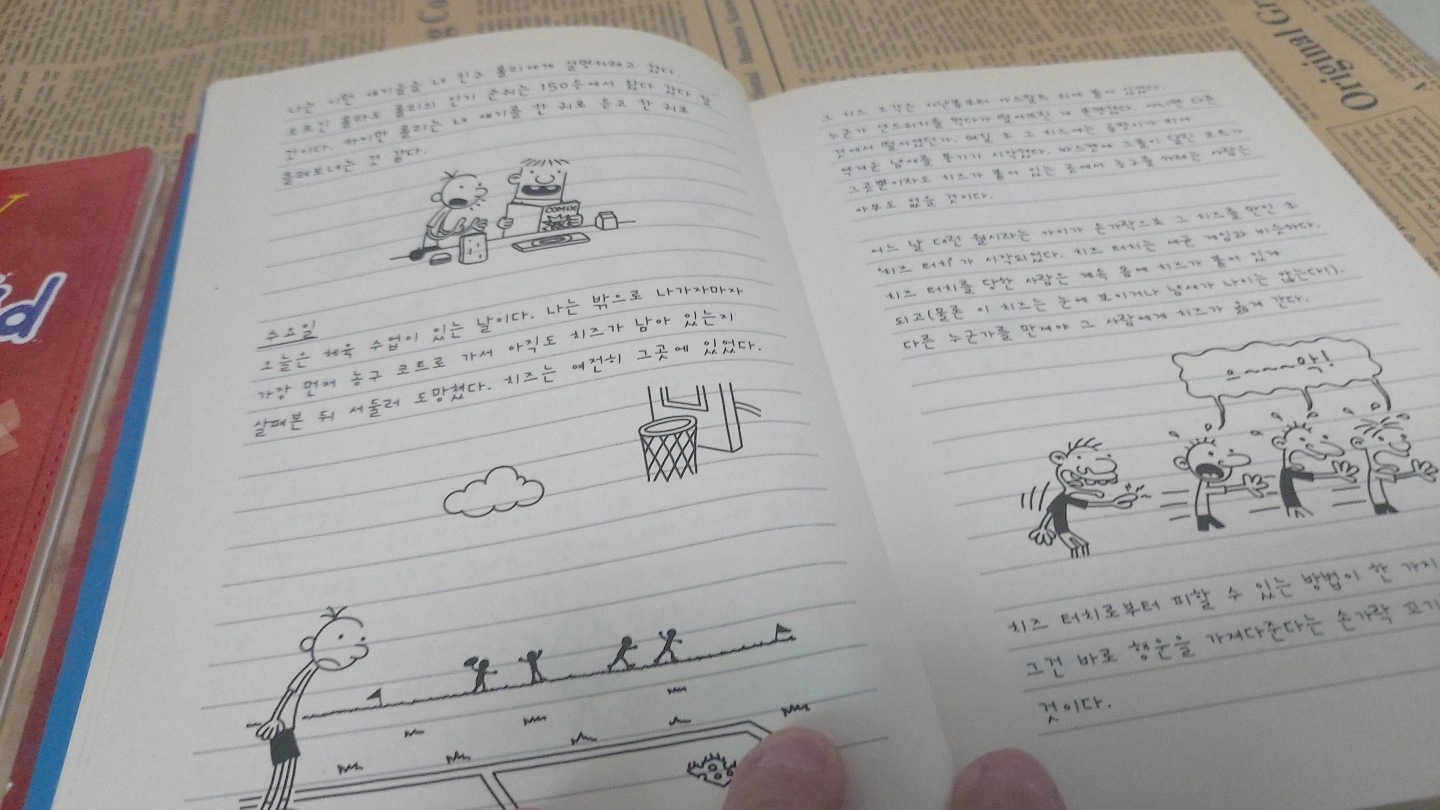 나는 이런 얘기들을 내 친구 롤리에게 설명하려고 했다.
모르긴 몰라도 롤리의 인기 순위는 150등에서 왔다 갔다 할
것이다. 하지만 롤리는 내 얘기를 한 귀로 듣고 한 귀로
흘려보내는 것 같다.
COMIX
수요일
오늘은 체육 수업이 있는 날이다. 나는 밖으로 나가자마자
가장 먼저 농구 코트로 가서 아직도 치즈가 남아 있는지
살펴본 뒤 서둘러 도망쳤다. 치즈는 여전히 그곳에 있었다.
그 치즈 조각은 지난봄부터 아스팔트 위에 붙어 있었다.
누군가 샌드위치를 먹다가 떨어뜨린 게 분명했다. 아니면 다른
것에서 떨어졌던가. 며칠 후 그 치즈에는 곰팡이가 피어
역겨운 냄새를 풍기기 시작했다. 바스켓에 그물이 달린 코트가
그곳뿐이라도 치즈가 붙어 있는 곳에서 농구를 하려는 사람은
아무도 없을 것이다.
어느 날 대런 월시라는 아이가 손가락으로 그 치즈를 만진 후
'치즈 터치'가 시작되었다. 치즈 터치는 세균 게임과 비슷하다.
치즈 터치를 당한 사람은 계속 몸에 치즈가 붙어 있게
되고(물론 이 치즈는 눈에 보이거나 냄새가 나지는 않는다!).
다른 누군가를 만져야 그 사람에게 치즈가 옮겨 간다.
으~~~~악!
치즈 터치로부터 피할 수 있는 방법이 한 가지
그건 바로 행운을 가져다준다는 손가락 꼬기
것이다.
Original